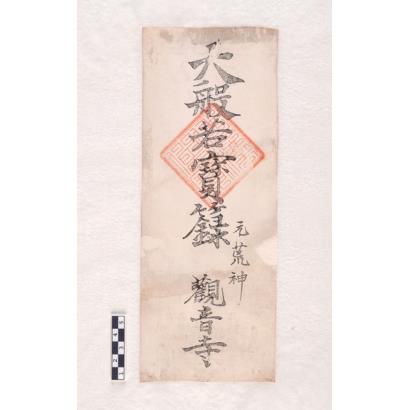 大般若寳籙
元荒神
觀音寺